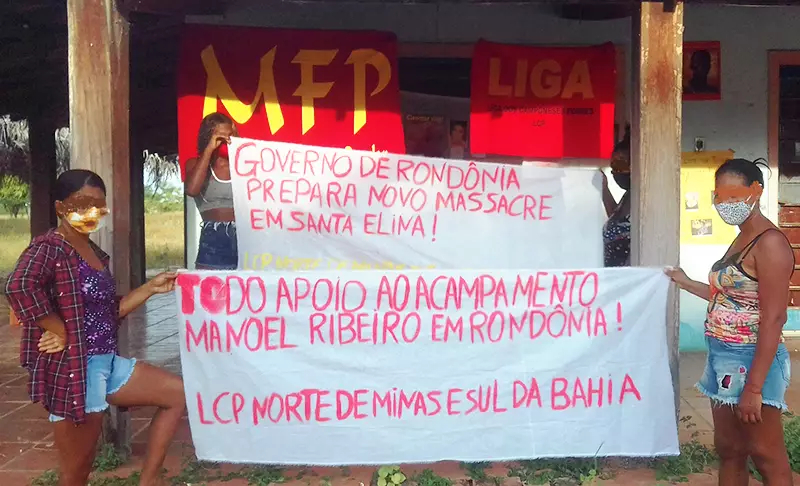 MFP
LIGA
LIGA DOS CAMPONESES POBRES
LCP
GOVERNO DE RONDÔNIA
PREPARA NOVO MASSACRE
EM SANTA ELINA!
LCP
TODO APOIO AO ACAMPAMENTO
MANOEL RIBEIRO EM RONDÔNIA!
LCP NORTE DE MINAS E SUL DA BAHIA